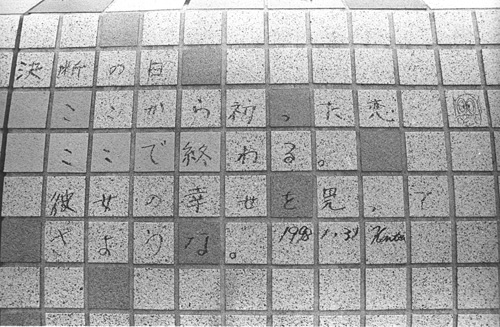 決断の日
ここから初った恋
ここで終わる。
彼女の幸せを って
さような。 1998 1.31 Kenta